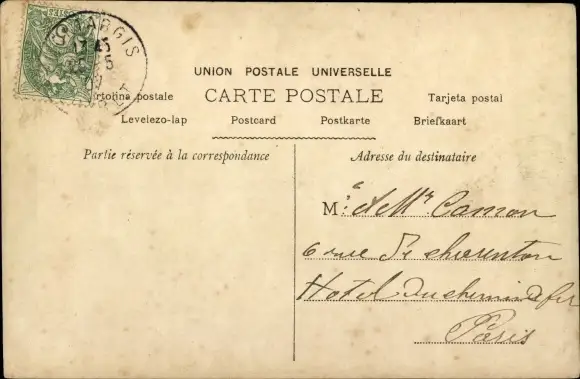 MONTARGIS
UNION POSTALE UNIVERSELLE
CARTE POSTALE
Cartolina postale
Tarjeta postal
Levelezo-lap Postcard Postkarte Briefkaart
Partie réservée à la correspondance
Adresse du destinataire
Mᵉ & Mʳ
6 rue De charenton
Hotel Du chemin de fer
Paris